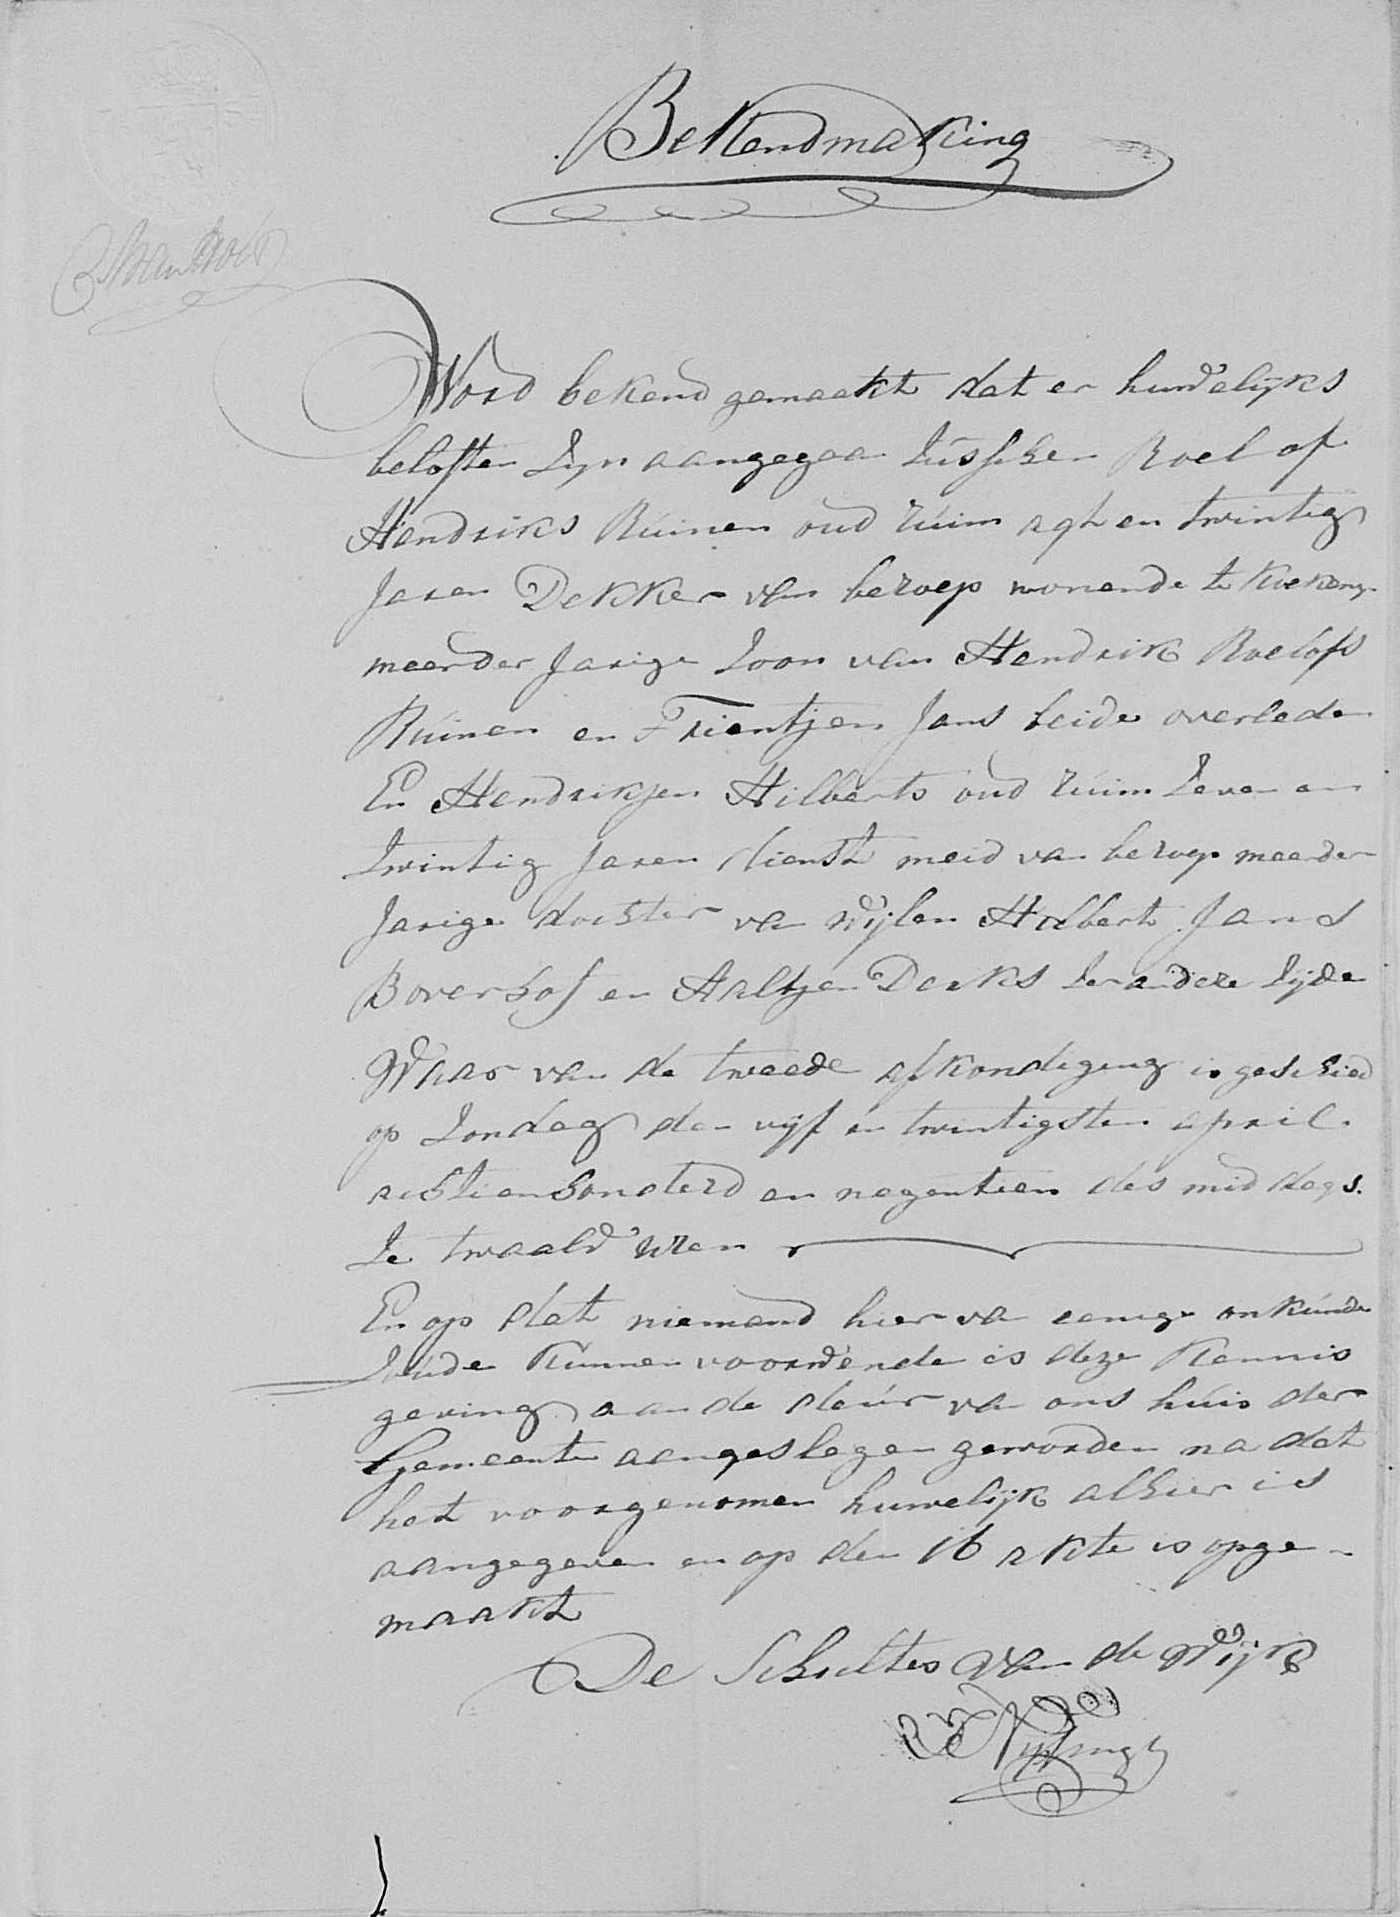 Bekendmaking
Word bekend gemaakt dat er huwelijks
beloften zyn aangegaan tússchen Roelof
Hendriks Rúinen oud rúim agt en twintig
Jaren Dekker van beroep wonende te Koekang
meerder Jarige zoon van Hendrik Roelofs
Rúinen en Trientjen Jans beide overleden
En Hendrikjen Hilberts oud rúim zeven en
twintig Jaren dienst meid van beroep meerder
Jarige dochter van wijlen Hilbert Jans
Boverhof en Aaltjen Derks ter andere zijde
Waar van de tweede afkondiging is geschied
op zondag den vijf en twintigsten april
achtien honderd en negentien des middags
te twaalf uren
En op dat niemand hier van eenige onkúnde
zoúde kúnnen voorwenden is deze kennis
geving aan de deúr van ons húis der
Gemeente aangeslagen geworden na dat
het voorgenomen huwelijk alhier is
aangegeven en op den 16 akte is opge-
maakt
De Schultes van de Wijk
Nysingh